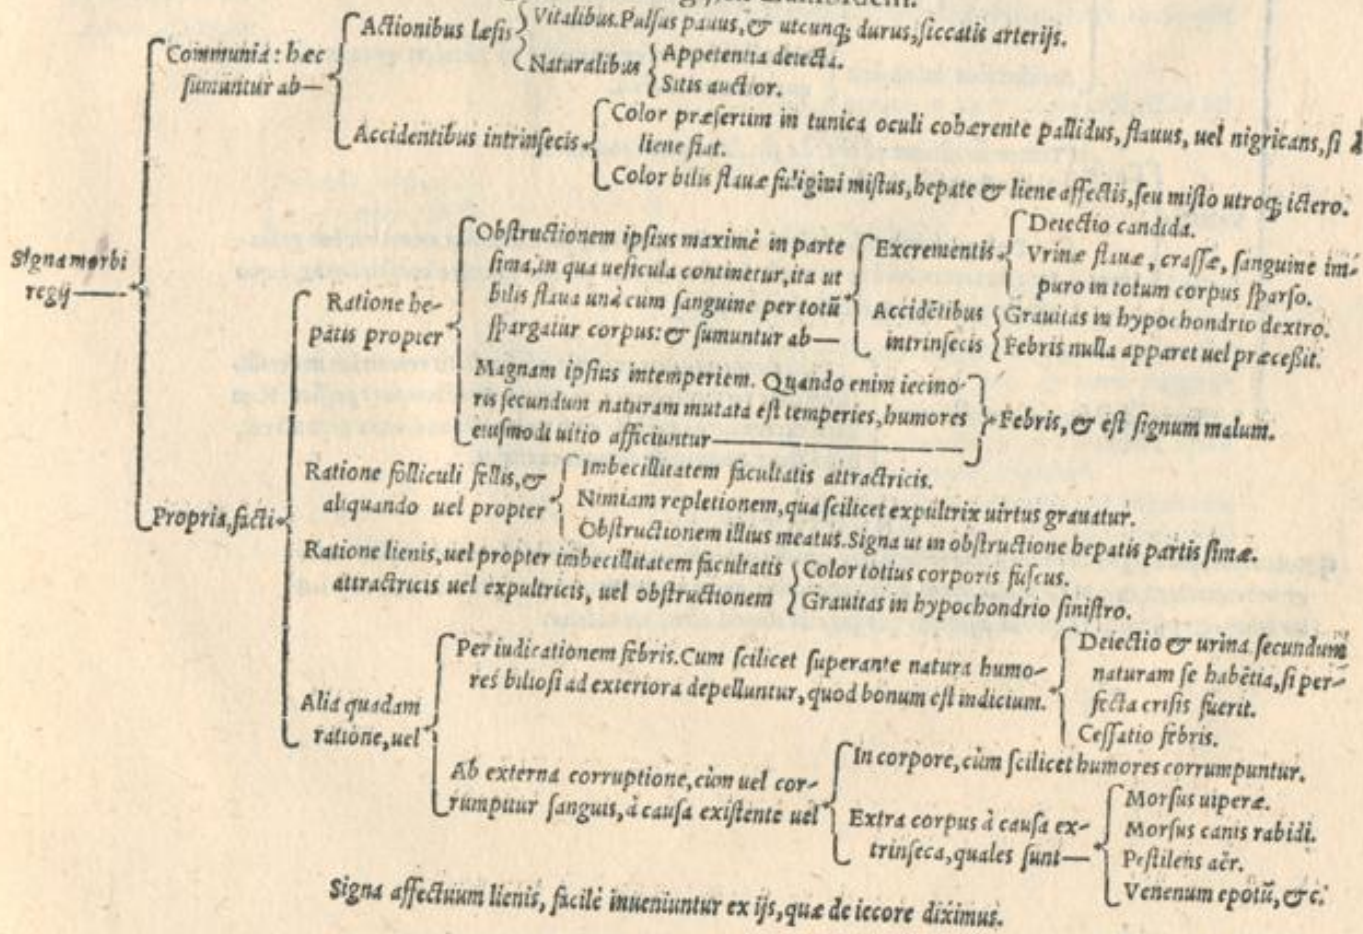 Vitalibus. Pulsus paruus, & utcunq; durus, siccatis arterijs.
Actionibus læsis
Naturalibus
Appetentia deiecta.
Sitis auctior.
Communia: hæc
sumuntur ab—
Accidentibus intrinsecis
Color præsertim in tunica oculi cohærente pallidus, flauus, uel nigricans, si à
liene fiat.
Color bilis flauæ fuligini mistus, hepate & liene affectis, seu misto utroq; ictero.
Signa morbi
regij—
Ratione he-
patis propter
Obstructionem ipsius maximè in parte
sima, in qua uesicula continetur, ita ut
bilis flaua unà cum sanguine per totū
spargatur corpus: & sumuntur ab—
Excrementis
Deiectio candida.
Vrinæ flauæ, crassæ, sanguine im-
puro in totum corpus sparso.
Accidētibus
intrinsecis
Grauitas in hypochondrio dextro.
Febris nulla apparet uel præceßit.
Magnam ipsius intemperiem. Quando enim iecino-
ris secundum naturam mutata est temperies, humores
eiusmodi uitio afficiuntur—
Febris, & est signum malum.
Propria, facti
Ratione folliculi fellis, &
aliquando uel propter
Imbecillitatem facultatis attractricis.
Nimiam repletionem, qua scilicet expultrix uirtus grauatur.
Obstructionem illius meatus. Signa ut in obstructione hepatis partis simæ.
Ratione lienis, uel propter imbecillitatem facultatis
attractricis uel expultricis, uel obstructionem
Color totius corporis fuscus.
Grauitas in hypochondrio sinistro.
Alia quadam
ratione, uel
Per iudicationem febris. Cum scilicet superante natura humo-
res biliosi ad exteriora depelluntur, quod bonum est indicium.
Deiectio & urina secundum
naturam se habētia, si per-
fecta crisis fuerit.
Cessatio febris.
Ab externa corruptione, cùm uel cor-
rumpitur sanguis, à causa existente uel
In corpore, cùm scilicet humores corrumpuntur.
Extra corpus à causa ex-
trinseca, quales sunt—
Morsus uiperæ.
Morsus canis rabidi.
Pestilens aër.
Venenum epotū, &c.
Signa affectuum lienis, facilè inueniuntur ex ijs, quæ de iecore diximus.